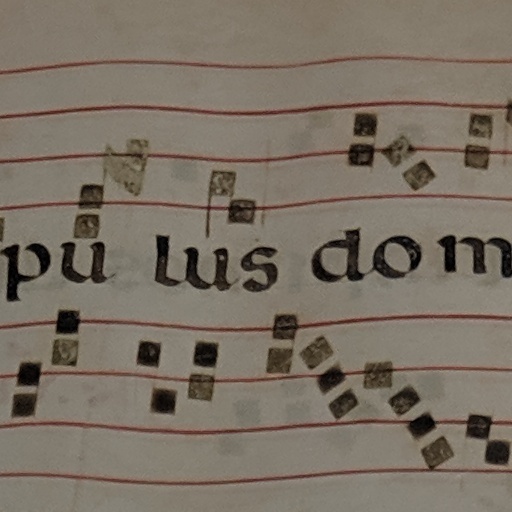 pu lus dom